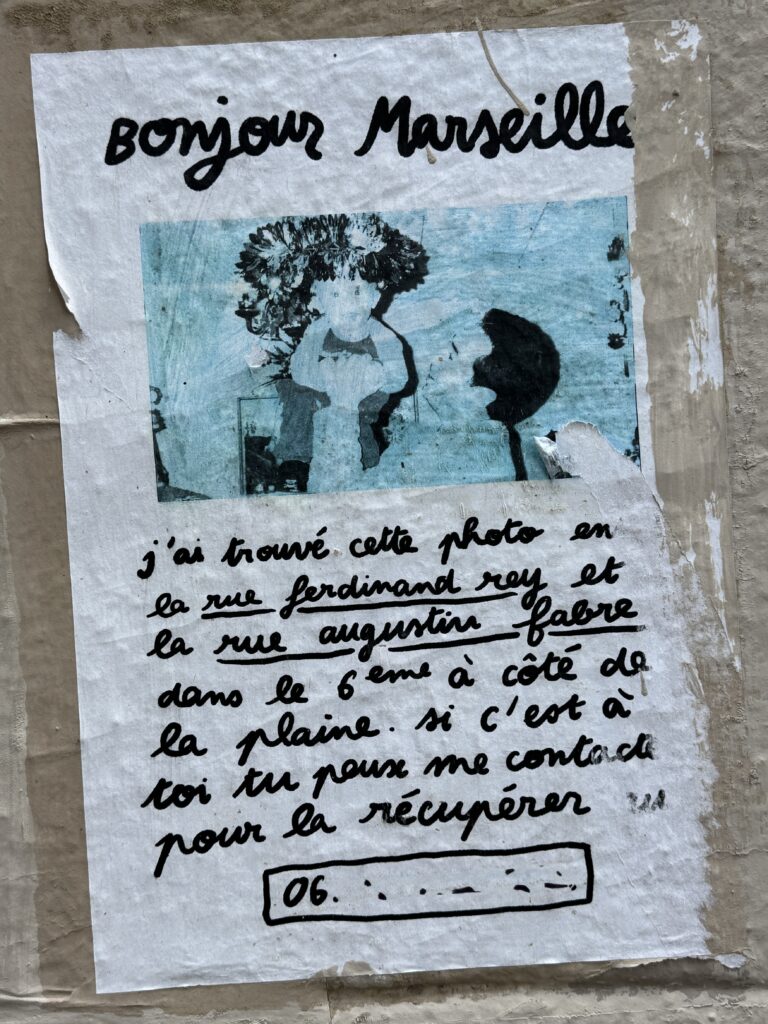 Bonjour Marseille
j'ai trouvé cette photo en
la rue ferdinand rey et
la rue augustin fabre
dans le 6eme à côté de
la plaine. si c'est à
toi tu peux me contact
pour la récupérer
06.